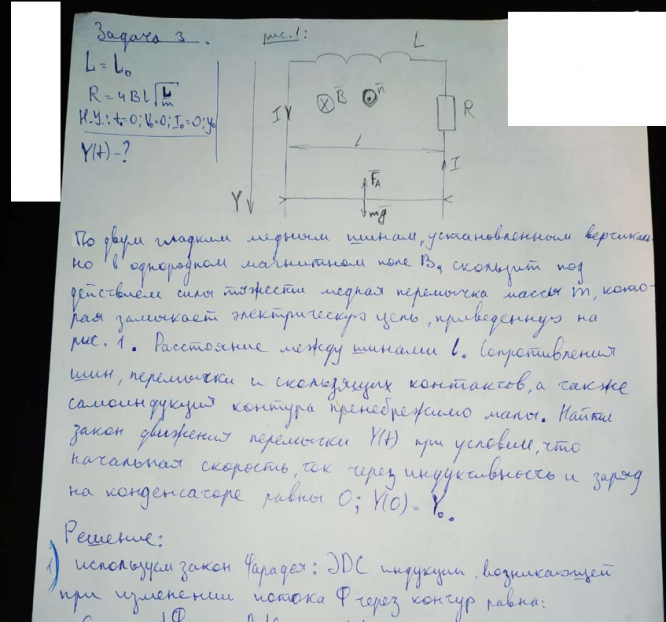 Задача 3.
рис.1:
L = L₀
R = 4Bl√(L/m)
Н.У.: t=0; V₀=0; I₀=0; y₀
Y(t)-?
L
I
B̄
n̄
R
l
I
Y
F̄A
mḡ
По двум гладким медным шинам, установленным вертикаль-
но в однородном магнитном поле B, скользит под
действием силы тяжести медная перемычка массы m, кото-
рая замыкает электрическую цепь, приведенную на
рис. 1. Расстояние между шинами l. Сопротивления
шин, перемычки и скользящих контактов, а также
самоиндукция контура пренебрежимо малы. Найти
закон движения перемычки Y(t) при условии, что
начальная скорость, ток через индуктивность и заряд
на конденсаторе равны 0; Y(0) = Y₀.
Решение:
1) используем закон Фарадея: ЭДС индукции, возникающей
при изменении потока Ф через контур равна: